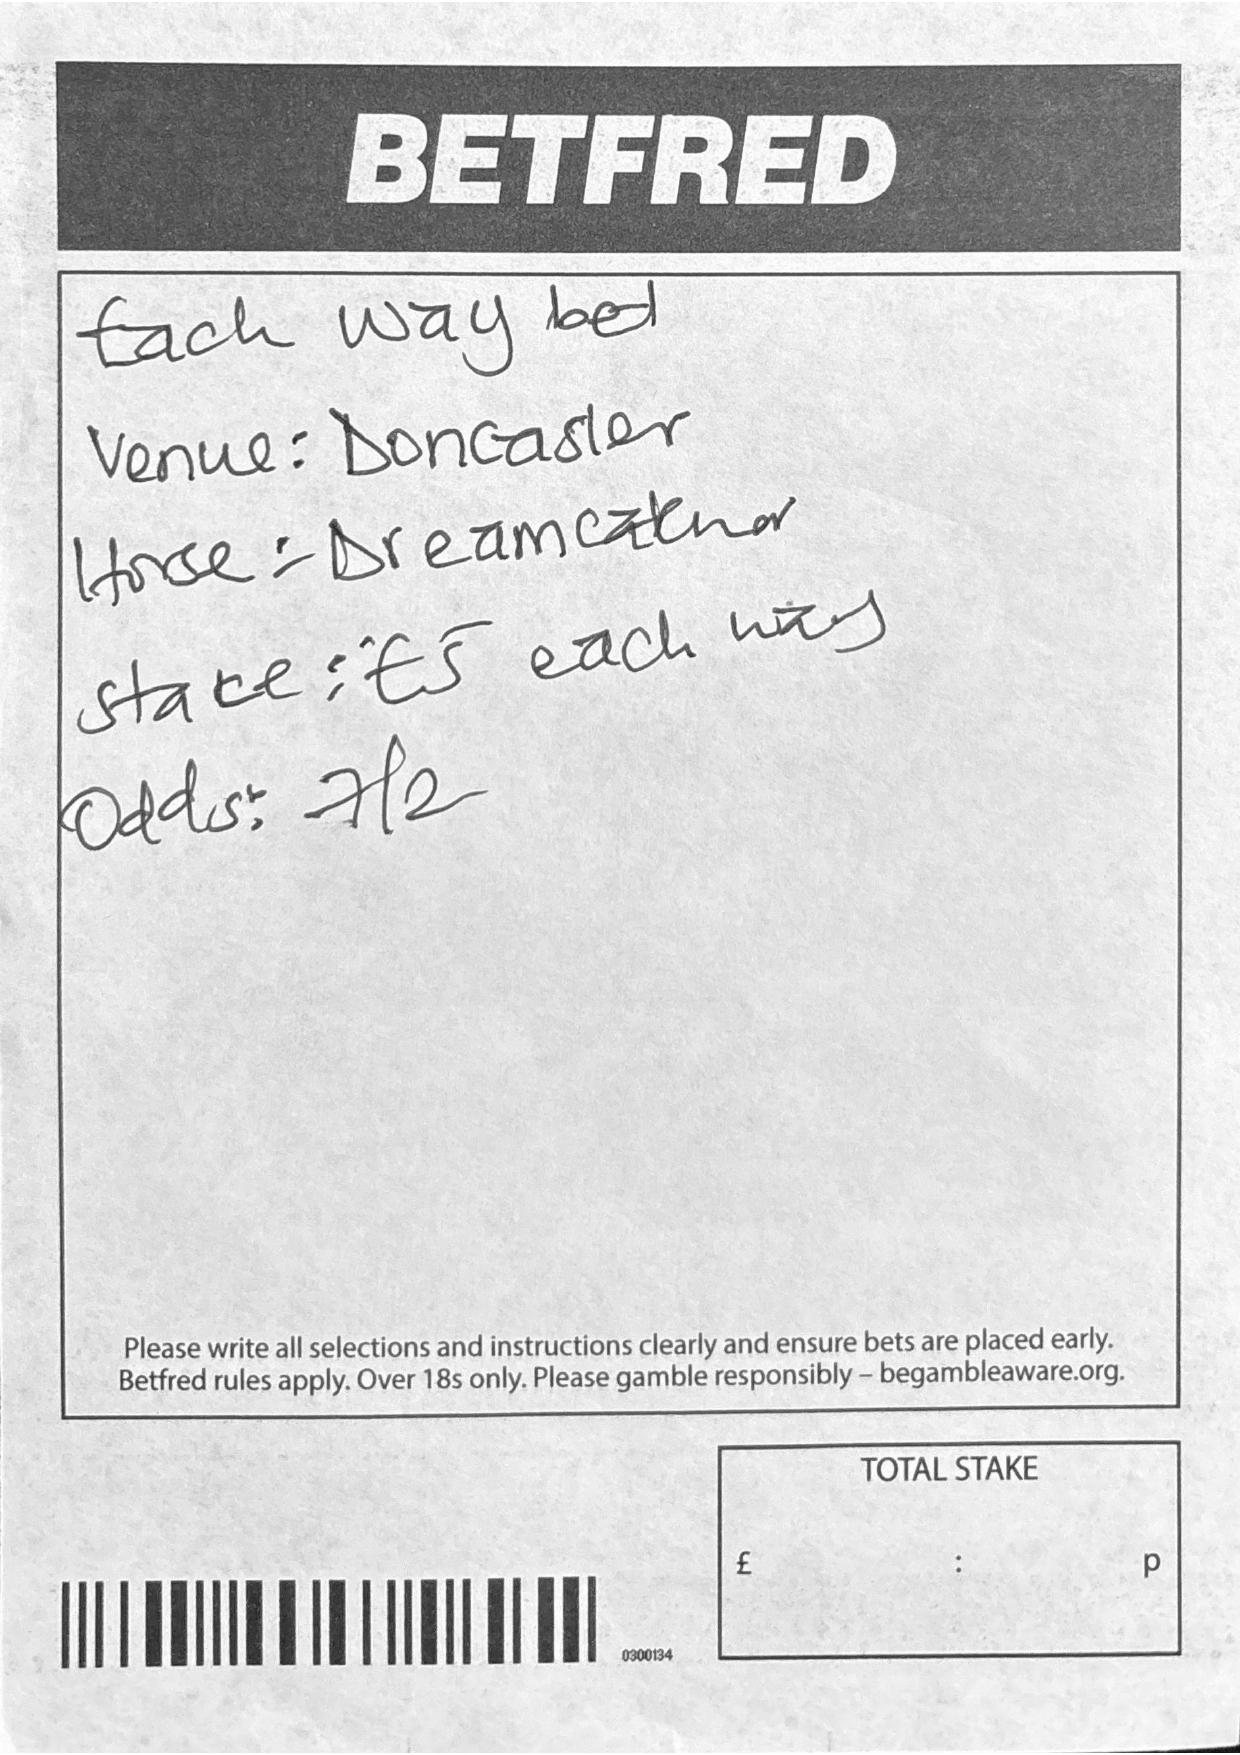 BETFRED
Each way bed
Venue: Doncaster
Horse :- Dreamcatcher
Stake : £5 each way
Odds: 7/2
Please write all selections and instructions clearly and ensure bets are placed early.
Betfred rules apply. Over 18s only. Please gamble responsibly – begambleaware.org.
TOTAL STAKE
£ : p
0300134